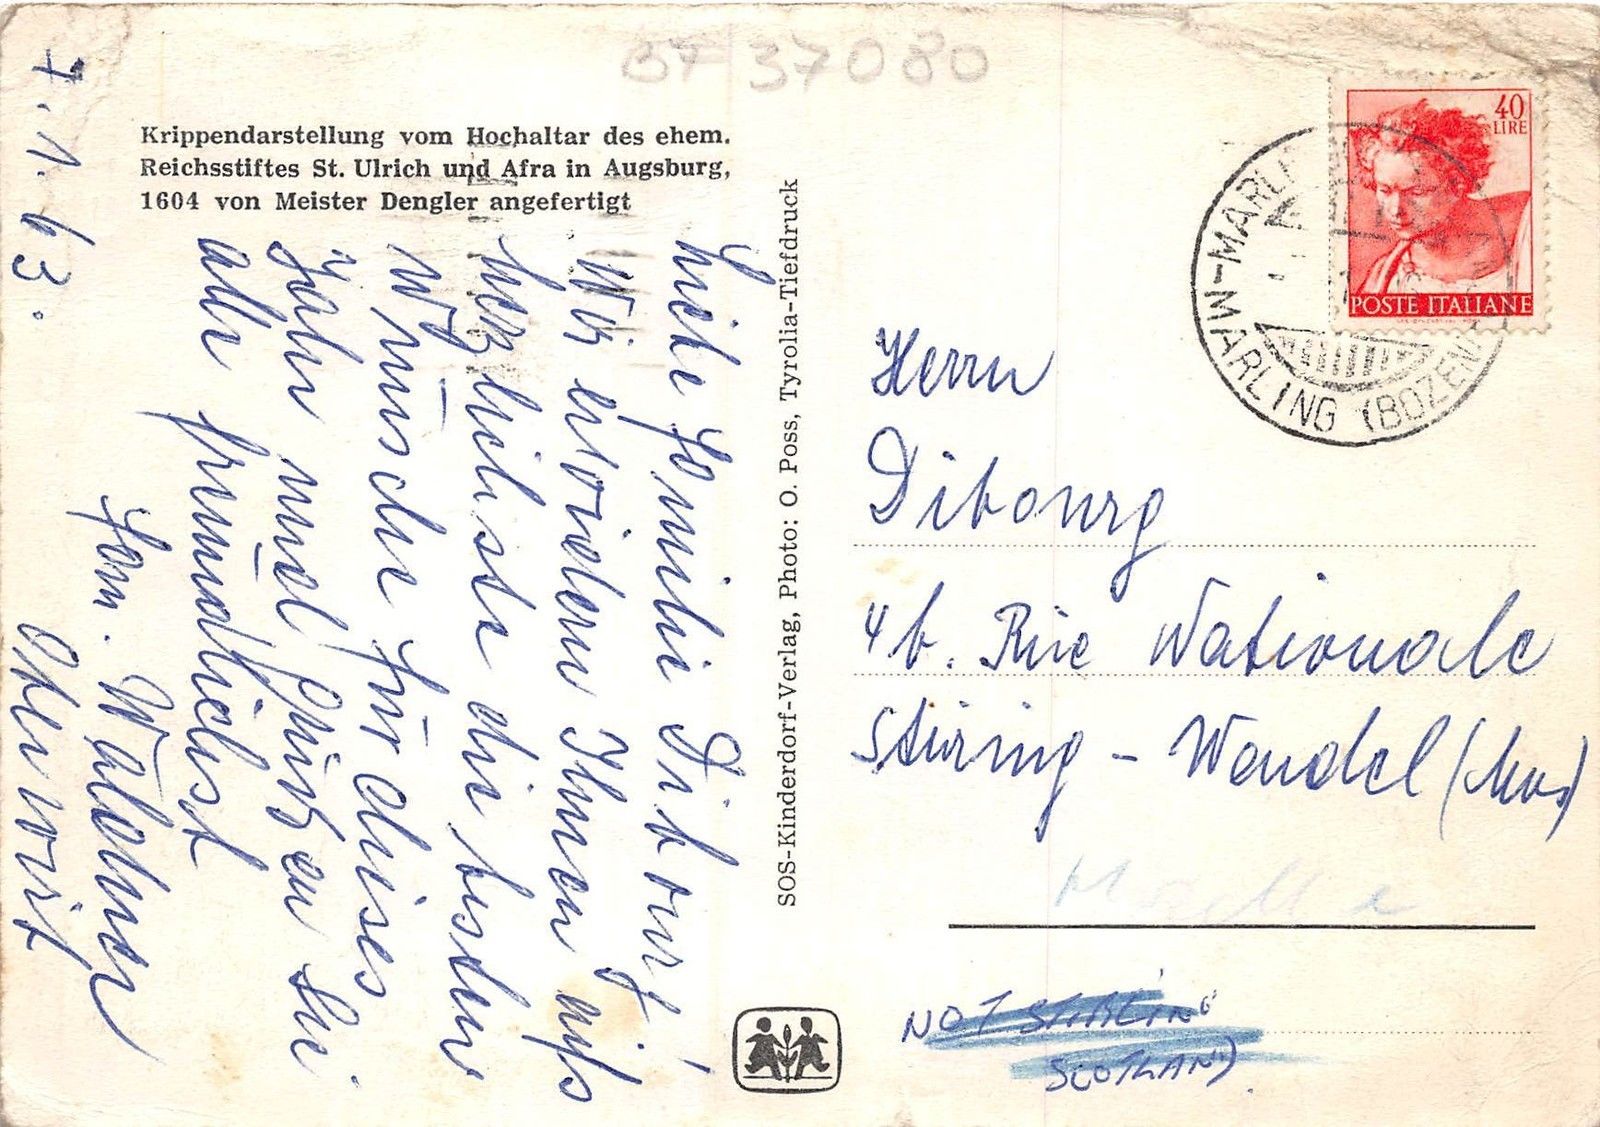 BT 37080
Krippendarstellung vom Hochaltar des ehem.
Reichsstiftes St. Ulrich und Afra in Augsburg,
1604 von Meister Dengler angefertigt
7.1.63.
Liebe Familie Dibourg!
Wir erwidern Ihnen aufs
herzlichste die besten
Wünsche für dieses
Jahr und grüßen Sie
alle freundlichst
Fam. Waldner
SOS-Kinderdorf-Verlag, Photo: O. Poss, Tyrolia-Tiefdruck
40
LIRE
POSTE ITALIANE
MARLING (BOZEN)
Herrn
Dibourg
4b. Rue Nationale
Stiring - Wendel (Mos)
NOT STIRLING
SCOTLAND